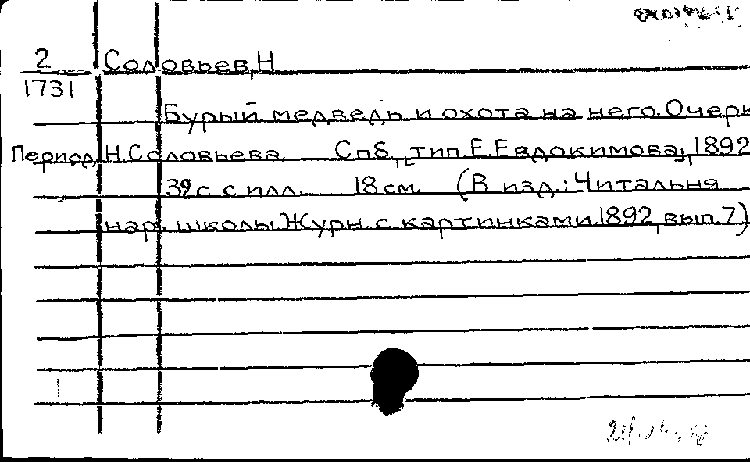 2 Соловьев, Н
1731
Бурый медведь и охота на него. Очерк
Период. Н. Соловьева. Спб., тип. Е. Евдокимова, 1892
39 с. с илл. 18 см. (В изд.: Читальня
нар. школы. Журн. с картинками. 1892, вып. 7)